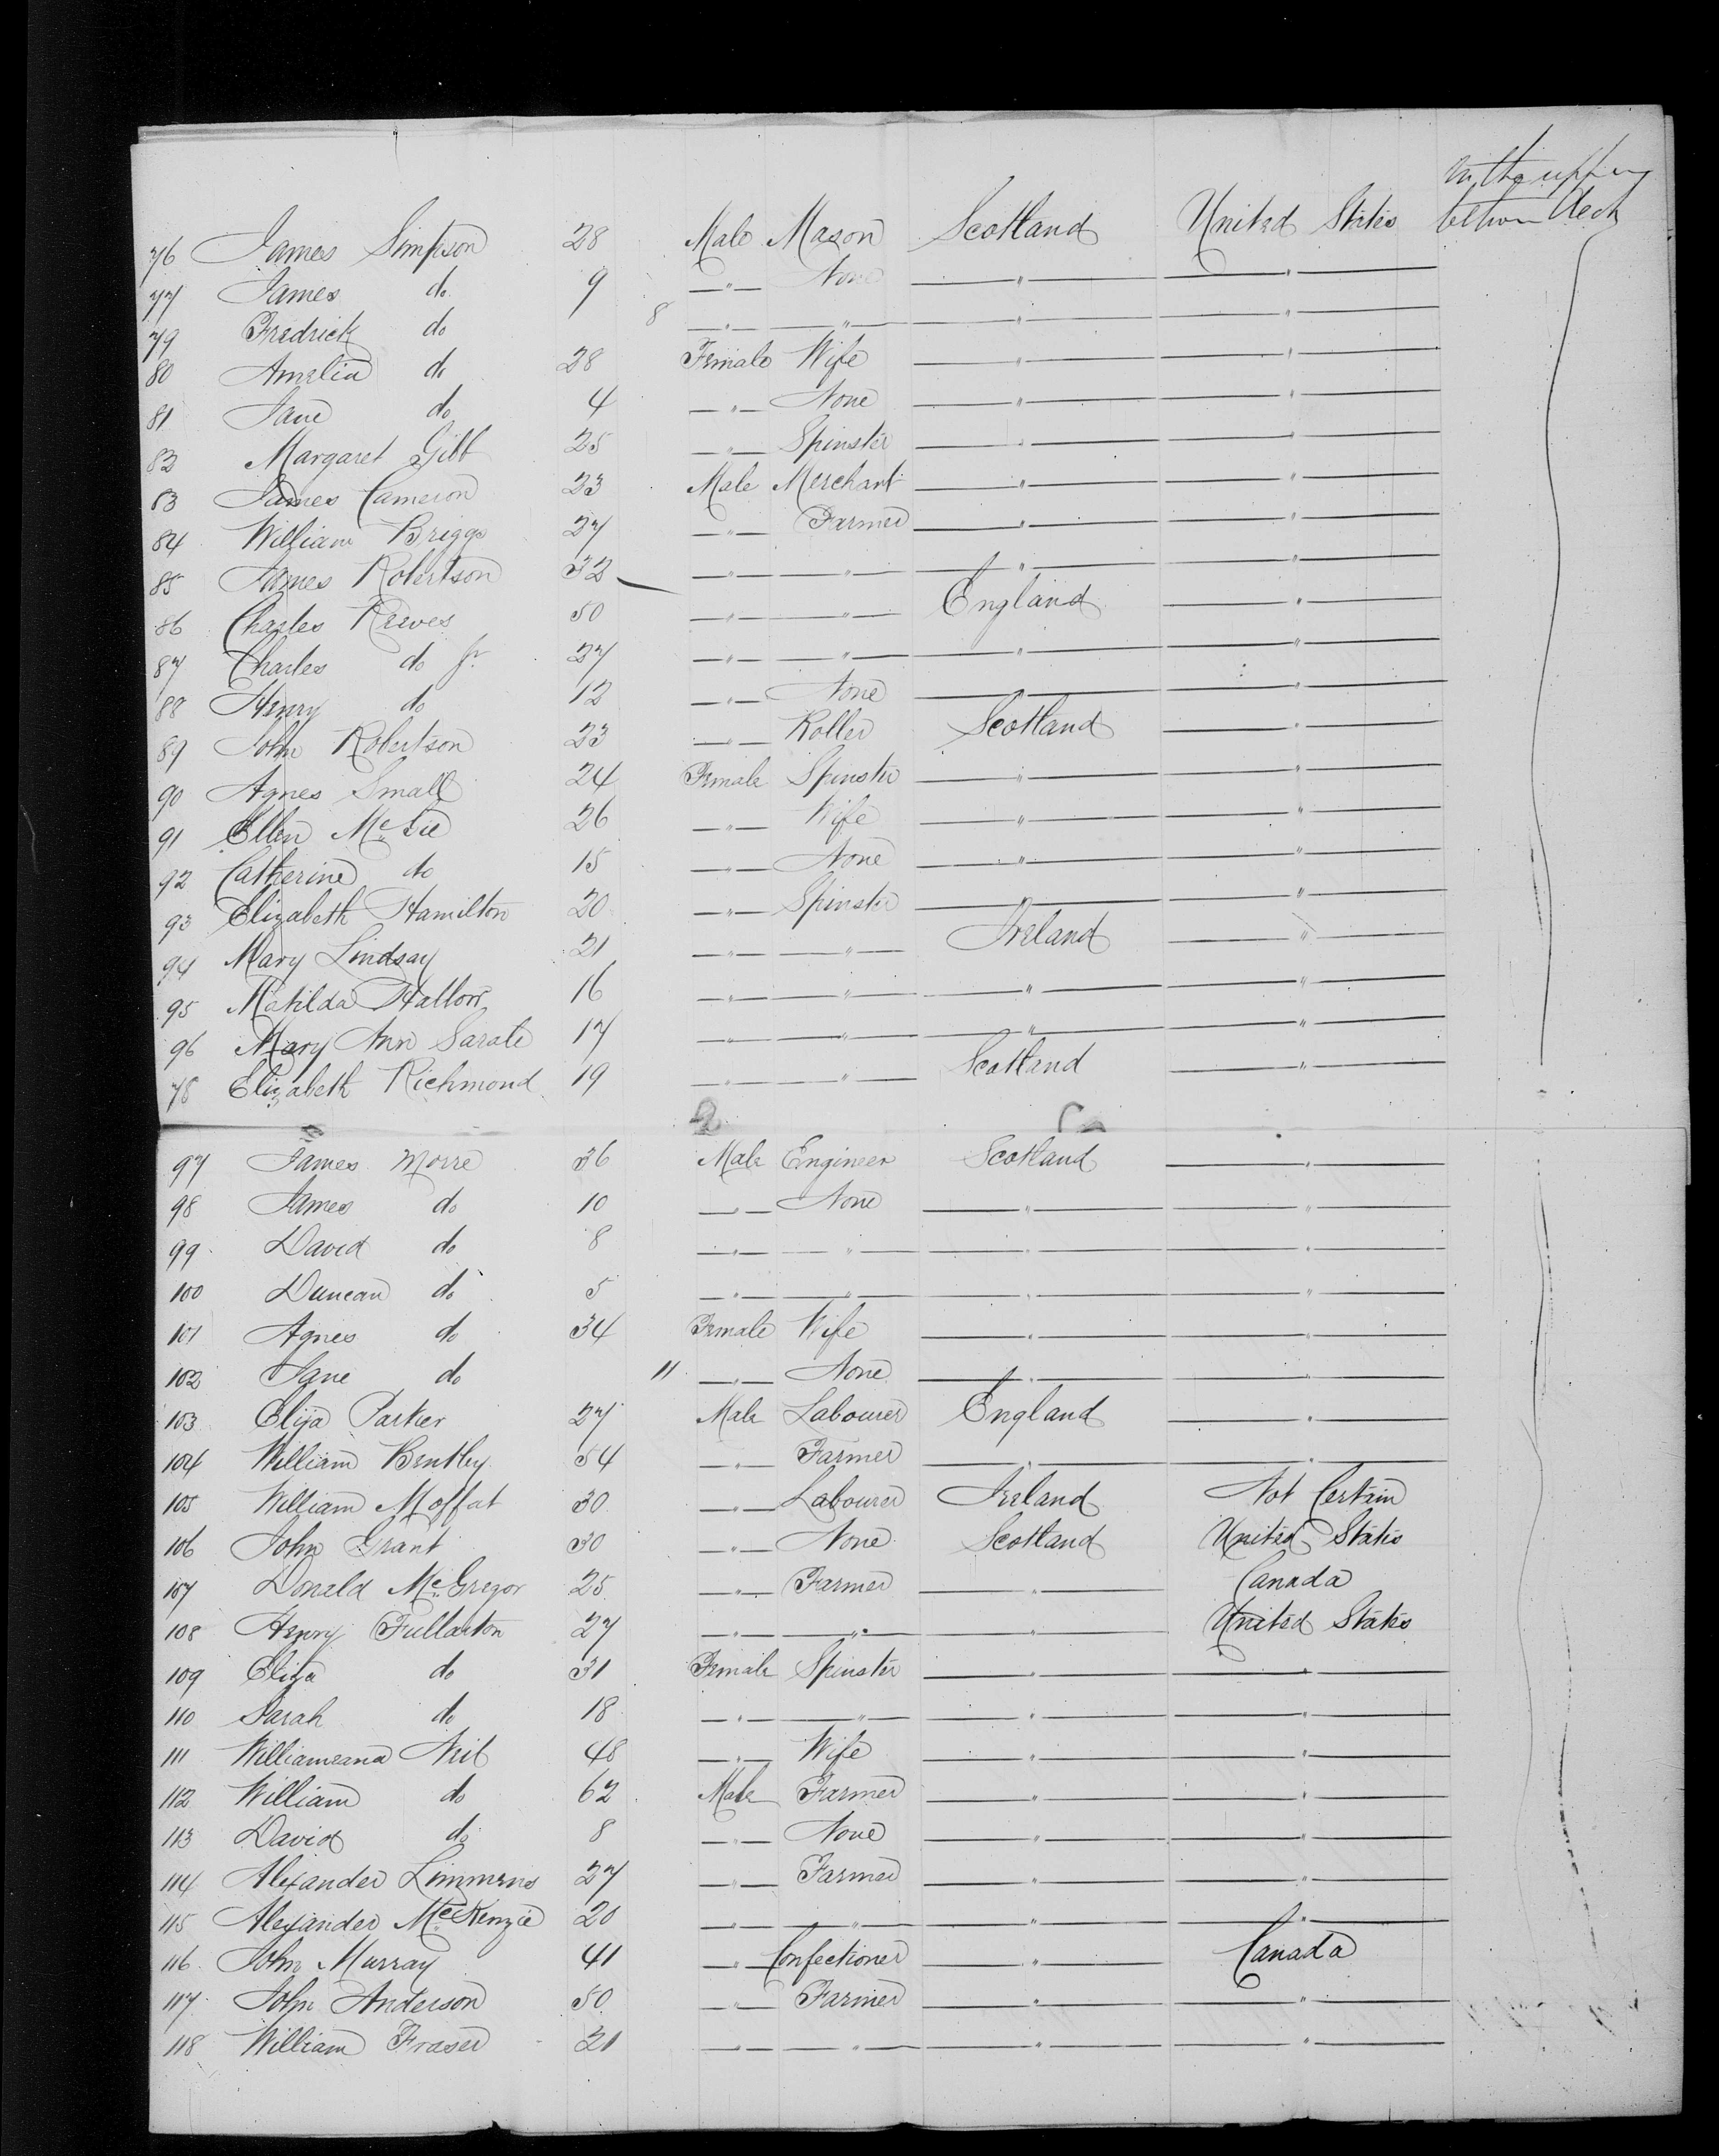 in the upper
between Deck
76 James Simpson 28 Male Mason Scotland United States
77 James do 9 —"— None —"— —"—
79 Fredrick do 8 —"— —"— —"— —"—
80 Amelia do 28 Female Wife —"— —"—
81 Jane do 4 —"— None —"— —"—
82 Margaret Gibb 25 —"— Spinster —"— —"—
83 James Cameron 23 Male Merchant —"— —"—
84 William Briggs 27 —"— Farmer —"— —"—
85 James Robertson 32 —"— —"— —"— —"—
86 Charles Reeves 50 —"— —"— England —"—
87 Charles do Jr. 27 —"— —"— —"— —"—
88 Henry do 12 —"— None — —"—
89 John Robertson 23 —"— Roller Scotland —"—
90 Agnes Small 24 Female Spinster —"— —"—
91 Ellen Mc Gie 26 —"— Wife —"— —"—
92 Catherine do 15 —"— None —"— —"—
93 Elizabeth Hamilton 20 —"— Spinster — —"—
94 Mary Lindsay 21 —"— —"— Ireland —"—
95 Matilda 16 —"— —"— —"— —"—
96 Mary Ann 17 —"— —"— —"— —"—
78 Elizabeth Richmond 19 —"— —"— Scotland —"—
97 James Morre 36 Male Engineer Scotland —"—
98 James do 10 —"— None —"— —"—
99 David do 8 —"— —"— —"— —"—
100 Duncan do 5 —"— —"— —"— —"—
101 Agnes do 34 Female Wife —"— —"—
102 Jane do 11 —"— None —"— —"—
103 Elija Parker 27 Male Labourer England —"—
104 William Bentley 54 —"— Farmer —"— —"—
105 William Moffat 30 —"— Labourer Ireland Not Certain
106 John Grant 30 —"— None Scotland United States
107 Donald McGregor 25 —"— Farmer —"— Canada
108 Henry Fullarton 27 —"— —"— —"— United States
109 Eliza do 31 Female Spinster —"— —"—
110 Sarah do 18 —"— —"— —"— —"—
111 Williameana Neil 48 —"— Wife —"— —"—
112 William do 62 Male Farmer —"— —"—
113 David do 8 —"— None —"— —"—
114 Alexander Limmens 27 —"— Farmer —"— —"—
115 Alexander McKenzie 20 —"— —"— —"— —"—
116 John Murray 41 —"— Confectioner —"— Canada
117 John Anderson 50 —"— Farmer —"— —"—
118 William Fraser 21 —"— —"— —"— —"—